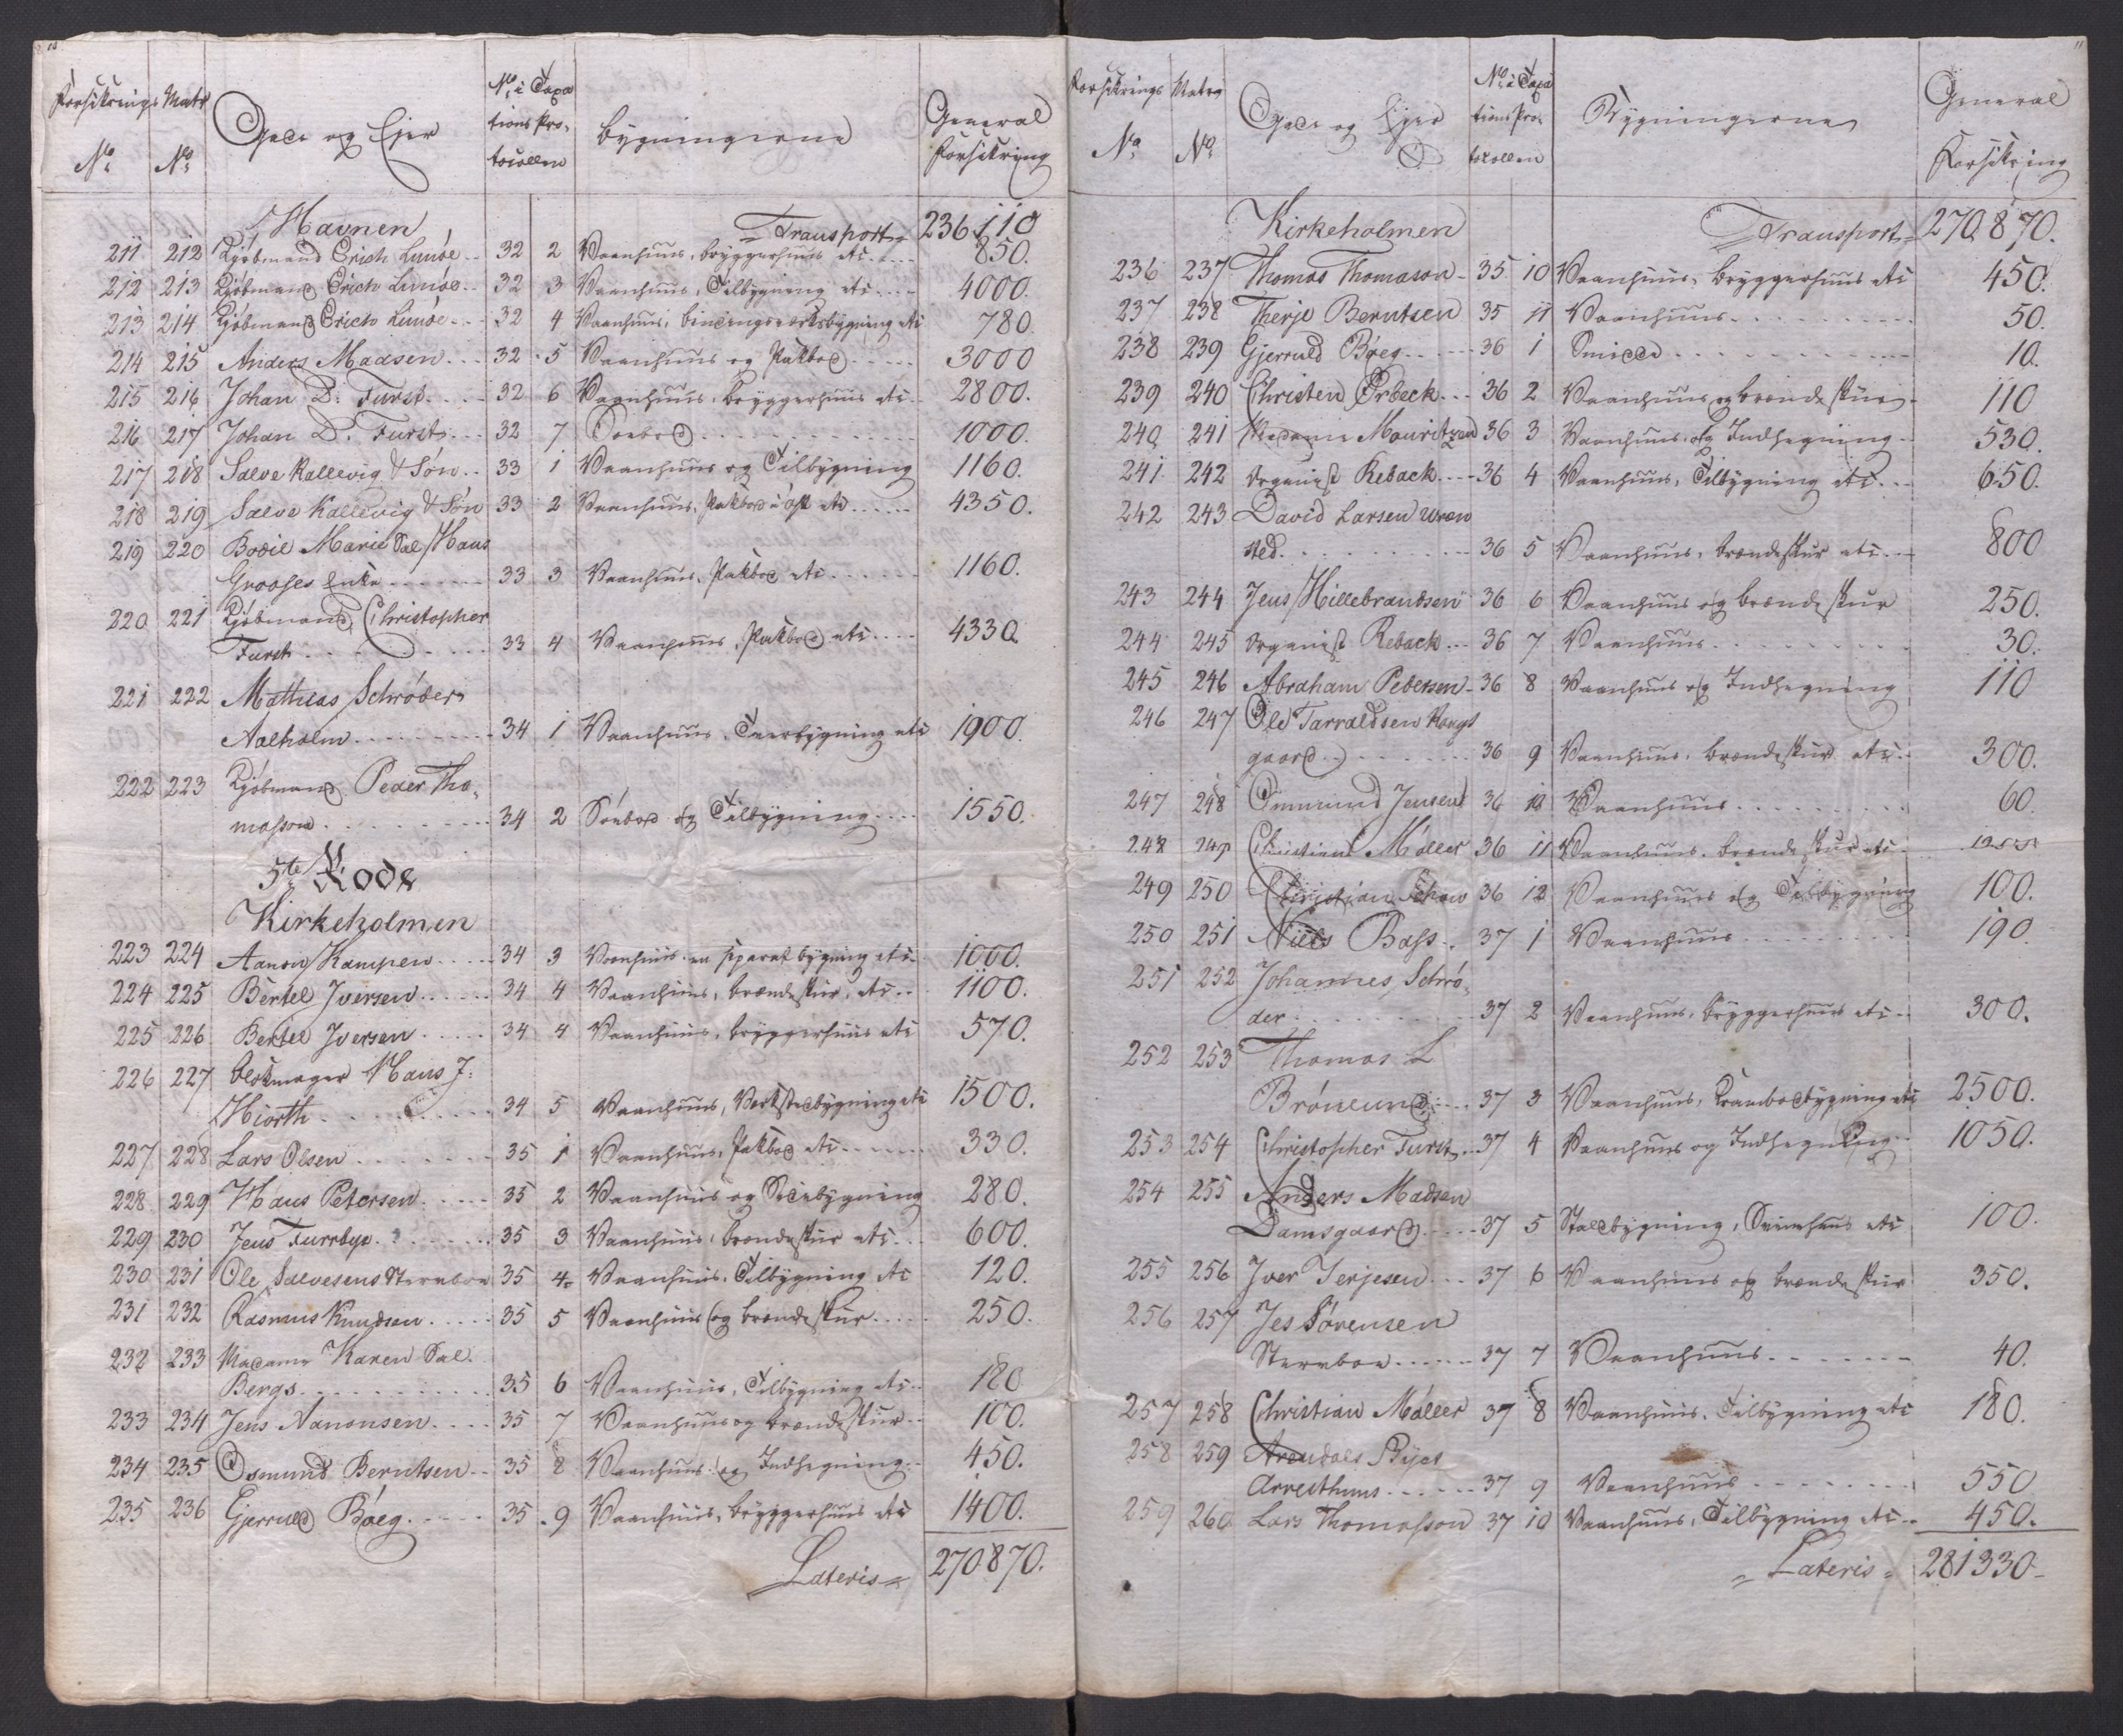 10
Forsikrings Matr No i Taxa
No No Gade og Ejer tions Pro- Bygningerne General
tocollen Forsikring
Havnen Transport 236110
211 212 Kjöbmand Erich Lunöe 32 2 Vaanhuus, bryggerhuus etc 850.
212 213 Kjöbmand Erich Lunöe 32 3 Vaanhuus, Tilbygning etc 4000.
213 214 Kjöbmand Erich Lunöe 32 4 Vaanhuus, bindingsverksbygning etc 780.
214 215 Anders Madsen 32 5 Vaanhuus og Pakbod 3000
215 216 Johan D. Furst 32 6 Vaanhuus, bryggerhuus etc 2800.
216 217 Johan D. Furst 32 7 Söebod 1000.
217 218 Salve Kallevig & Sön 33 1 Vaanhuus og Tilbygning 1160.
218 219 Salve Kallevig & Sön 33 2 Vaanhuus, Pakbod etc 4350.
219 220 Bodil Marie Sal. Hans
Grooses Enke 33 3 Vaanhuus, Pakbod etc 1160.
220 221 Kjöbmand Christopher
Furst 33 4 Vaanhuus, Pakbod etc 4330
221 222 Mathias Schröder
Aalholm 34 1 Vaanhuus, Tverbygning etc 1900.
222 223 Kjöbmand Peder Tho-
masson 34 2 Söebod og Tilbygning 1550.
5te Rode
Kirkeholmen
223 224 Aanon Kampen 34 3 Vaanhuus en separat bygning etc 1000.
224 225 Bertel Iversen 34 4 Vaanhuus, brændeskur, etc 1100.
225 226 Bertel Iversen 34 4 Vaanhuus, bryggerhuus etc 570.
226 227 blokmager Hans J:
Hiorth 34 5 Vaanhuus, Verkstedbygning etc 1500.
227 228 Lars Olsen 35 1 Vaanhuus, Pakbod etc 330.
228 229 Hans Petersen 35 2 Vaanhuus og Sidebygning 280.
229 230 Jens Furrbye 35 3 Vaanhuus, brændeskur etc 600.
230 231 Ole Salvesens Sterboe 35 4 Vaanhuus, Tilbygning etc 120.
231 232 Rasmus Knudsen 35 5 Vaanhuus og brændeskur 250.
232 233 Madame Karen Sal.
Bergs 35 6 Vaanhuus, Tilbygning etc 180
233 234 Jens Aanonsen 35 7 Vaanhuus og brændeskur 100.
234 235 Osmund Berntsen 35 8 Vaanhuus og Indhegning 450.
235 236 Gjerruld Böeg 35 9 Vaanhuus, bryggerhuus etc 1400.
Lateris 270870.
11
Forsikrings Matr No i Taxa General
No No Gade og Ejer tions Pro- Bygningerne
tocollen Forsikring
Kirkeholmen Transport 270870.
236 237 Thomas Thomason 35 10 Vaanhuus, bryggerhuus etc 450.
237 238 Therje Berntsen 35 11 Vaanhuus 50.
238 239 Gjerruld Böeg 36 1 Smidde 10.
239 240 Christen Örbeck 36 2 Vaanhuus og brændeskur 110
240 241 Madame Mouritzen 36 3 Vaanhuus og Indhegning 530.
241 242 Organist Reback 36 4 Vaanhuus, Tilbygning etc 650.
242 243 David Larsen Wren
sted 36 5 Vaanhuus, brændeskur etc 800
243 244 Jens Hillebrandsen 36 6 Vaanhuus og brændeskur 250.
244 245 Organist Reback 36 7 Vaanhuus 30.
245 246 Abraham Petersen 36 8 Vaanhuus og Indhegning 110
246 247 Ole Tarraldsen Kongs
gaard 36 9 Vaanhuus, brændeskur etc 300.
247 248 Ommund Jensen 36 10 Vaanhuus 60.
248 249 Christian Möller 36 11 Vaanhuus, brændeskur etc
249 250 Christian Schow 36 12 Vaanhuus og Tilbygning 100.
250 251 Niels Bass 37 1 Vaanhuus 190
251 252 Johannes Schrö-
der 37 2 Vaanhuus, bryggerhuus etc 300.
252 253 Thomas L
Brönlund 37 3 Vaanhuus, Krambodbygning etc 2500.
253 254 Christopher Furst 37 4 Vaanhuus og Indhegning 1050.
254 255 Anders Madsen
Damsgaard 37 5 Staldbygning, Sviinehuus etc 100.
255 256 Iver Terjesen 37 6 Vaanhuus og brændeskur 350.
256 257 Jes Sörensen
Sterboe 37 7 Vaanhuus 40.
257 258 Christian Möller 37 8 Vaanhuus, Tilbygning etc 180.
258 259 Arendals Byes
Arresthuus 37 9 Vaanhuus 550
259 260 Lars Thomasson 37 10 Vaanhuus, Tilbygning etc 450.
Lateris 281330